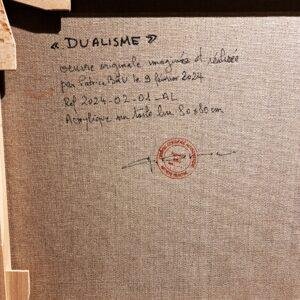 « DUALISME »
œuvre originale imaginée et réalisée
par Patrice le 9 février 2024
Ref 2024-02-01_AL
Acrylique sur toile lin 80x80cm